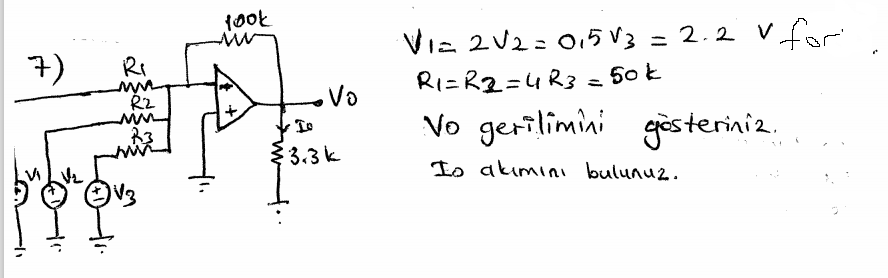 7)
100k
R1
R2
R3
V1
V2
V3
Vo
Io
3.3k
V1 = 2V2 = 0,5 V3 = 2.2 V for
R1 = R2 = 4R3 = 50k
Vo gerilimini gösteriniz.
Io akımını bulunuz.